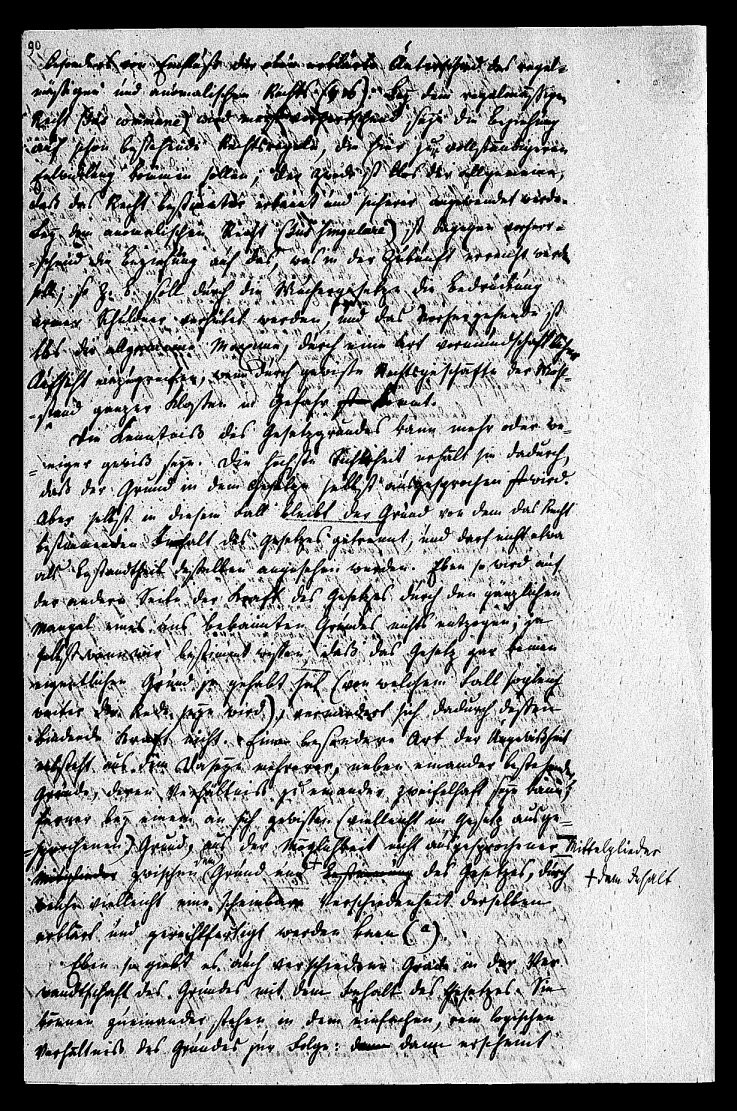 90
besonders von Einfluß der oben erklärte Unterschied des regel-
mäßigen und anomalischen Rechts (§ 16). Bey dem regelmäßigen
Recht (Jus commune) wird meist vorherrschend seyn die Beziehung
auf schon bestehende Rechtsregeln, die hier zu vollständigerer
Entwicklung kommen sollen; der Zweck ist blos der allgemeine,
daß das Recht bestimmter erkannt und sicherer angewendet werde.
Bey dem anomalischen Recht (Jus singulare) ist dagegen vorherr-
schend die Beziehung auf das, was in der Zukunft erreicht werden
soll; so z. B. soll durch die Wuchergesetze die Bedrückung
armer Schuldner verhütet werden, und das Vorhergehende ist
blos die allgemeine Maxime, durch eine Art vormundschaftlicher
Aufsicht einzugreifen, wenn durch gewisse Rechtsgeschäfte der Wohl-
stand ganzer Klassen in Gefahr kommt.
Die Kenntniß des Gesetzgrundes kann mehr oder we-
niger gewiß seyn. Die höchste Sicherheit erhält sie dadurch,
daß der Grund in dem Gesetze selbst ausgesprochen wird.
Aber selbst in diesem Fall bleibt der Grund von dem das Recht
bestimmenden Inhalt des Gesetzes getrennt, und darf nicht etwa
als Bestandtheil desselben angesehen werden. Eben so wird auf
der andern Seite der Kraft des Gesetzes durch den gänzlichen
Mangel eines uns bekannten Grundes nichts entzogen; ja
selbst wenn wir bestimmt wissen, daß das Gesetz gar keinen
eigentlichen Grund je gehabt hat (von welchem Fall sogleich
weiter die Rede seyn wird), vermindert sich dadurch dessen
bindende Kraft nicht. Eine besondere Art der Ungewißheit
entsteht aus dem Daseyn mehrerer, neben einander bestehender
Gründe, deren Verhältnis zu einander zweifelhaft seyn kann;
ferner bey einem an sich gewissen (vielleicht im Gesetz ausge-
sprochenen) Grund, aus der Möglichkeit nicht ausgesprochener Mittelglieder
zwischen dem Grund und + des Gesetzes, durch
+ dem Inhalt
welche vielleicht eine scheinbare Verschiedenheit derselben
erklärt und gerechtfertigt werden kann (a).
Eben so giebt es auch verschiedene Grade in der Ver-
wandtschaft des Grundes mit dem Inhalt des Gesetzes. Sie
können zueinander stehen in dem einfachen, rein logischen
Verhältniß des Grundes zur Folge: dann erscheint